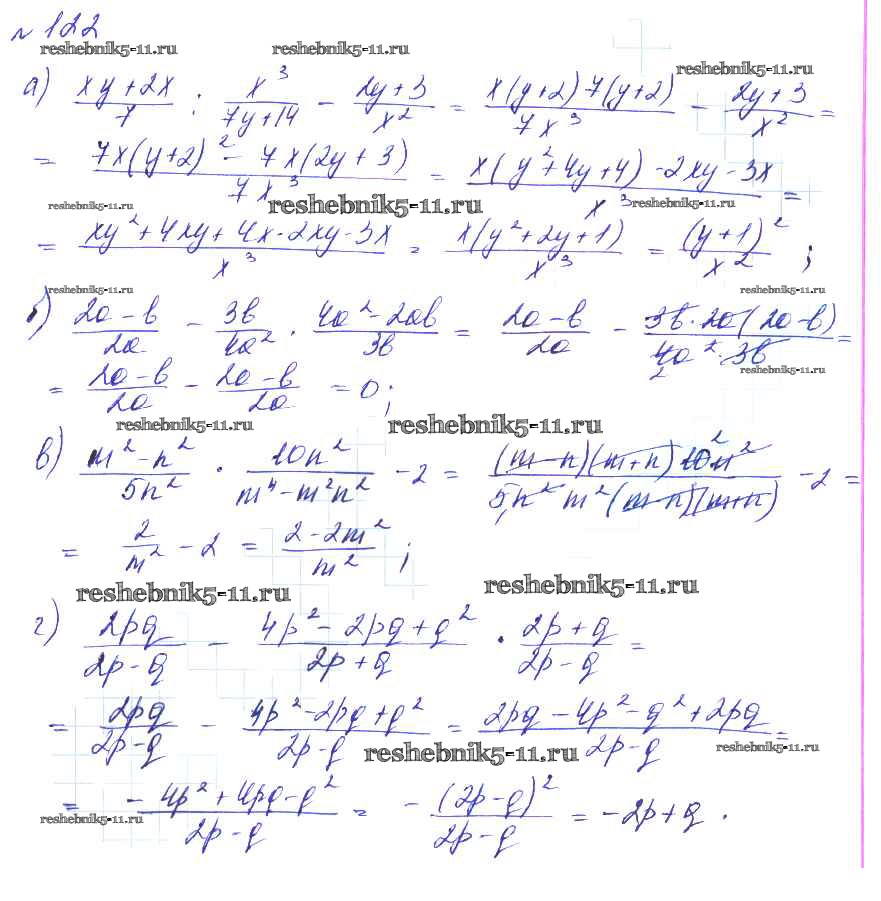 № 122
reshebnik5-11.ru reshebnik5-11.ru reshebnik5-11.ru
а) (xy+2x)/7 : x³/(7y+14) − (2y+3)/x² = (x(y+2) 7(y+2))/(7x³) − (2y+3)/x² =
= (7x(y+2)² − 7x(2y+3))/(7x³) = (x(y²+4y+4) − 2xy − 3x)/x³ =
reshebnik5-11.ru reshebnik5-11.ru reshebnik5-11.ru
= (xy²+4xy+4x-2xy-3x)/x³ = (x(y²+2y+1))/x³ = (y+1)²/x² ;
reshebnik5-11.ru reshebnik5-11.ru
б) (2a−b)/2a − 3b/4a² · (4a²−2ab)/3b = (2a−b)/2a − (3b·2a(2a−b))/(4a²·3b) =
2
reshebnik5-11.ru
= (2a−b)/2a − (2a−b)/2a = 0;
reshebnik5-11.ru reshebnik5-11.ru
в) (m²−n²)/5n² · 10n²/(m⁴−m²n²) − 2 = ((m−n)(m+n) 10n²)/(5n² m²(m−n)(m+n)) − 2 =
2
reshebnik5-11.ru
= 2/m² − 2 = (2−2m²)/m² ;
reshebnik5-11.ru reshebnik5-11.ru
г) 2pq/(2p−q) − (4p²−2pq+q²)/(2p+q) · (2p+q)/(2p−q) =
= 2pq/(2p−q) − (4p²−2pq+q²)/(2p−q) = (2pq−4p²−q²+2pq)/(2p−q) =
reshebnik5-11.ru reshebnik5-11.ru
= (−4p²+4pq−q²)/(2p−q) = −(2p−q)²/(2p−q) = −2p+q .
reshebnik5-11.ru